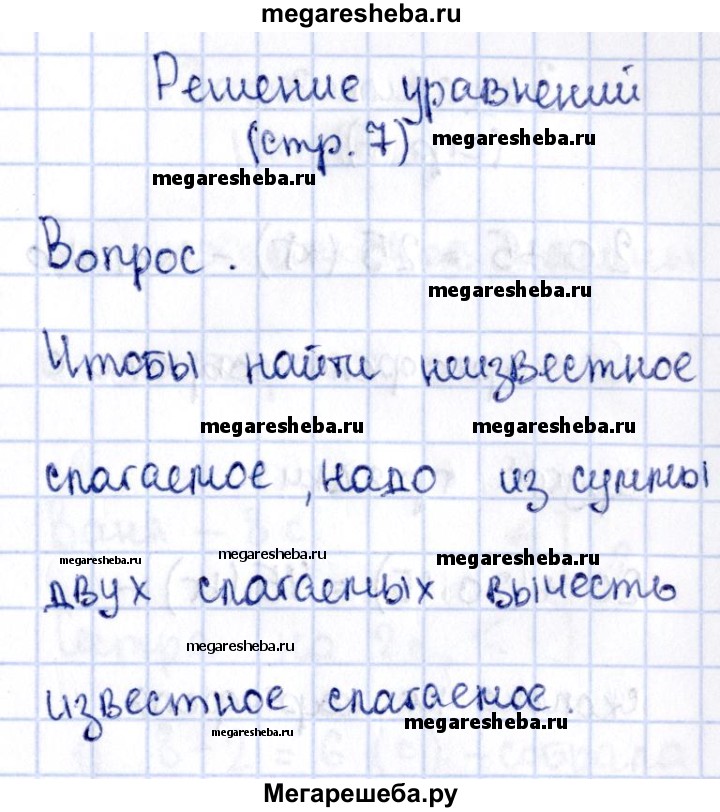 megaresheba.ru
Решение уравнений
(стр. 7) megaresheba.ru
megaresheba.ru
Вопрос.
megaresheba.ru
Чтобы найти неизвестное
megaresheba.ru megaresheba.ru
слагаемое, надо из суммы
megaresheba.ru megaresheba.ru megaresheba.ru
двух слагаемых вычесть
megaresheba.ru
известное слагаемое.
megaresheba.ru megaresheba.ru
Мегарешеба.ру